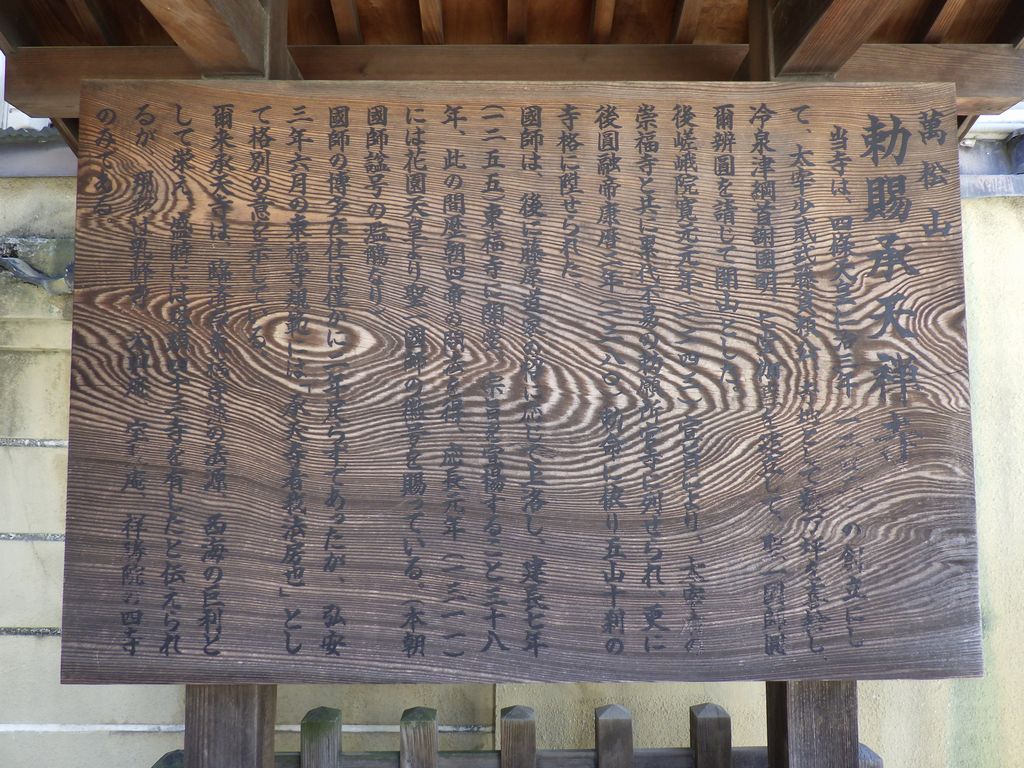 萬松山
勅賜承天禅寺
当寺は、四條天皇仁治三年の創立にし
て、太宰少貳武藤資頼
冷泉津綱首謝國明
爾辨圓を請じて開山とした。
後嵯峨院寛元元年（一二四三）宣旨により、太宰府の
崇福寺と共に累代不易の勅願所官寺に列せられ、更に
後圓融帝康暦二年（一三八〇）勅命に依り五山十刹の
寺格に陞せられた。
國師は、後に藤原道家の特に応じて上洛し、建長七年
（一二五五）東福寺に開堂、宗旨を宣揚すること三十八
年、此の間歴朝四帝の開法を得、應長元年（一三一一）
には花園天皇より聖一國師の徽号を賜っている。（本朝
國師諡号の濫觴なり
國師の博多在住は僅かに二年足らずであったが、弘安
三年六月の東福寺規範には「承天寺者我法房也」とし
て格別の意を示している。
爾来承天寺は、臨済宗東福寺派の法源、西海の巨刹と
して栄え、盛時には塔頭四十三寺を有したと伝えられ
るが、現在は乳峰寺、天與庵、宝聚庵、祥勝院の四寺
のみである。